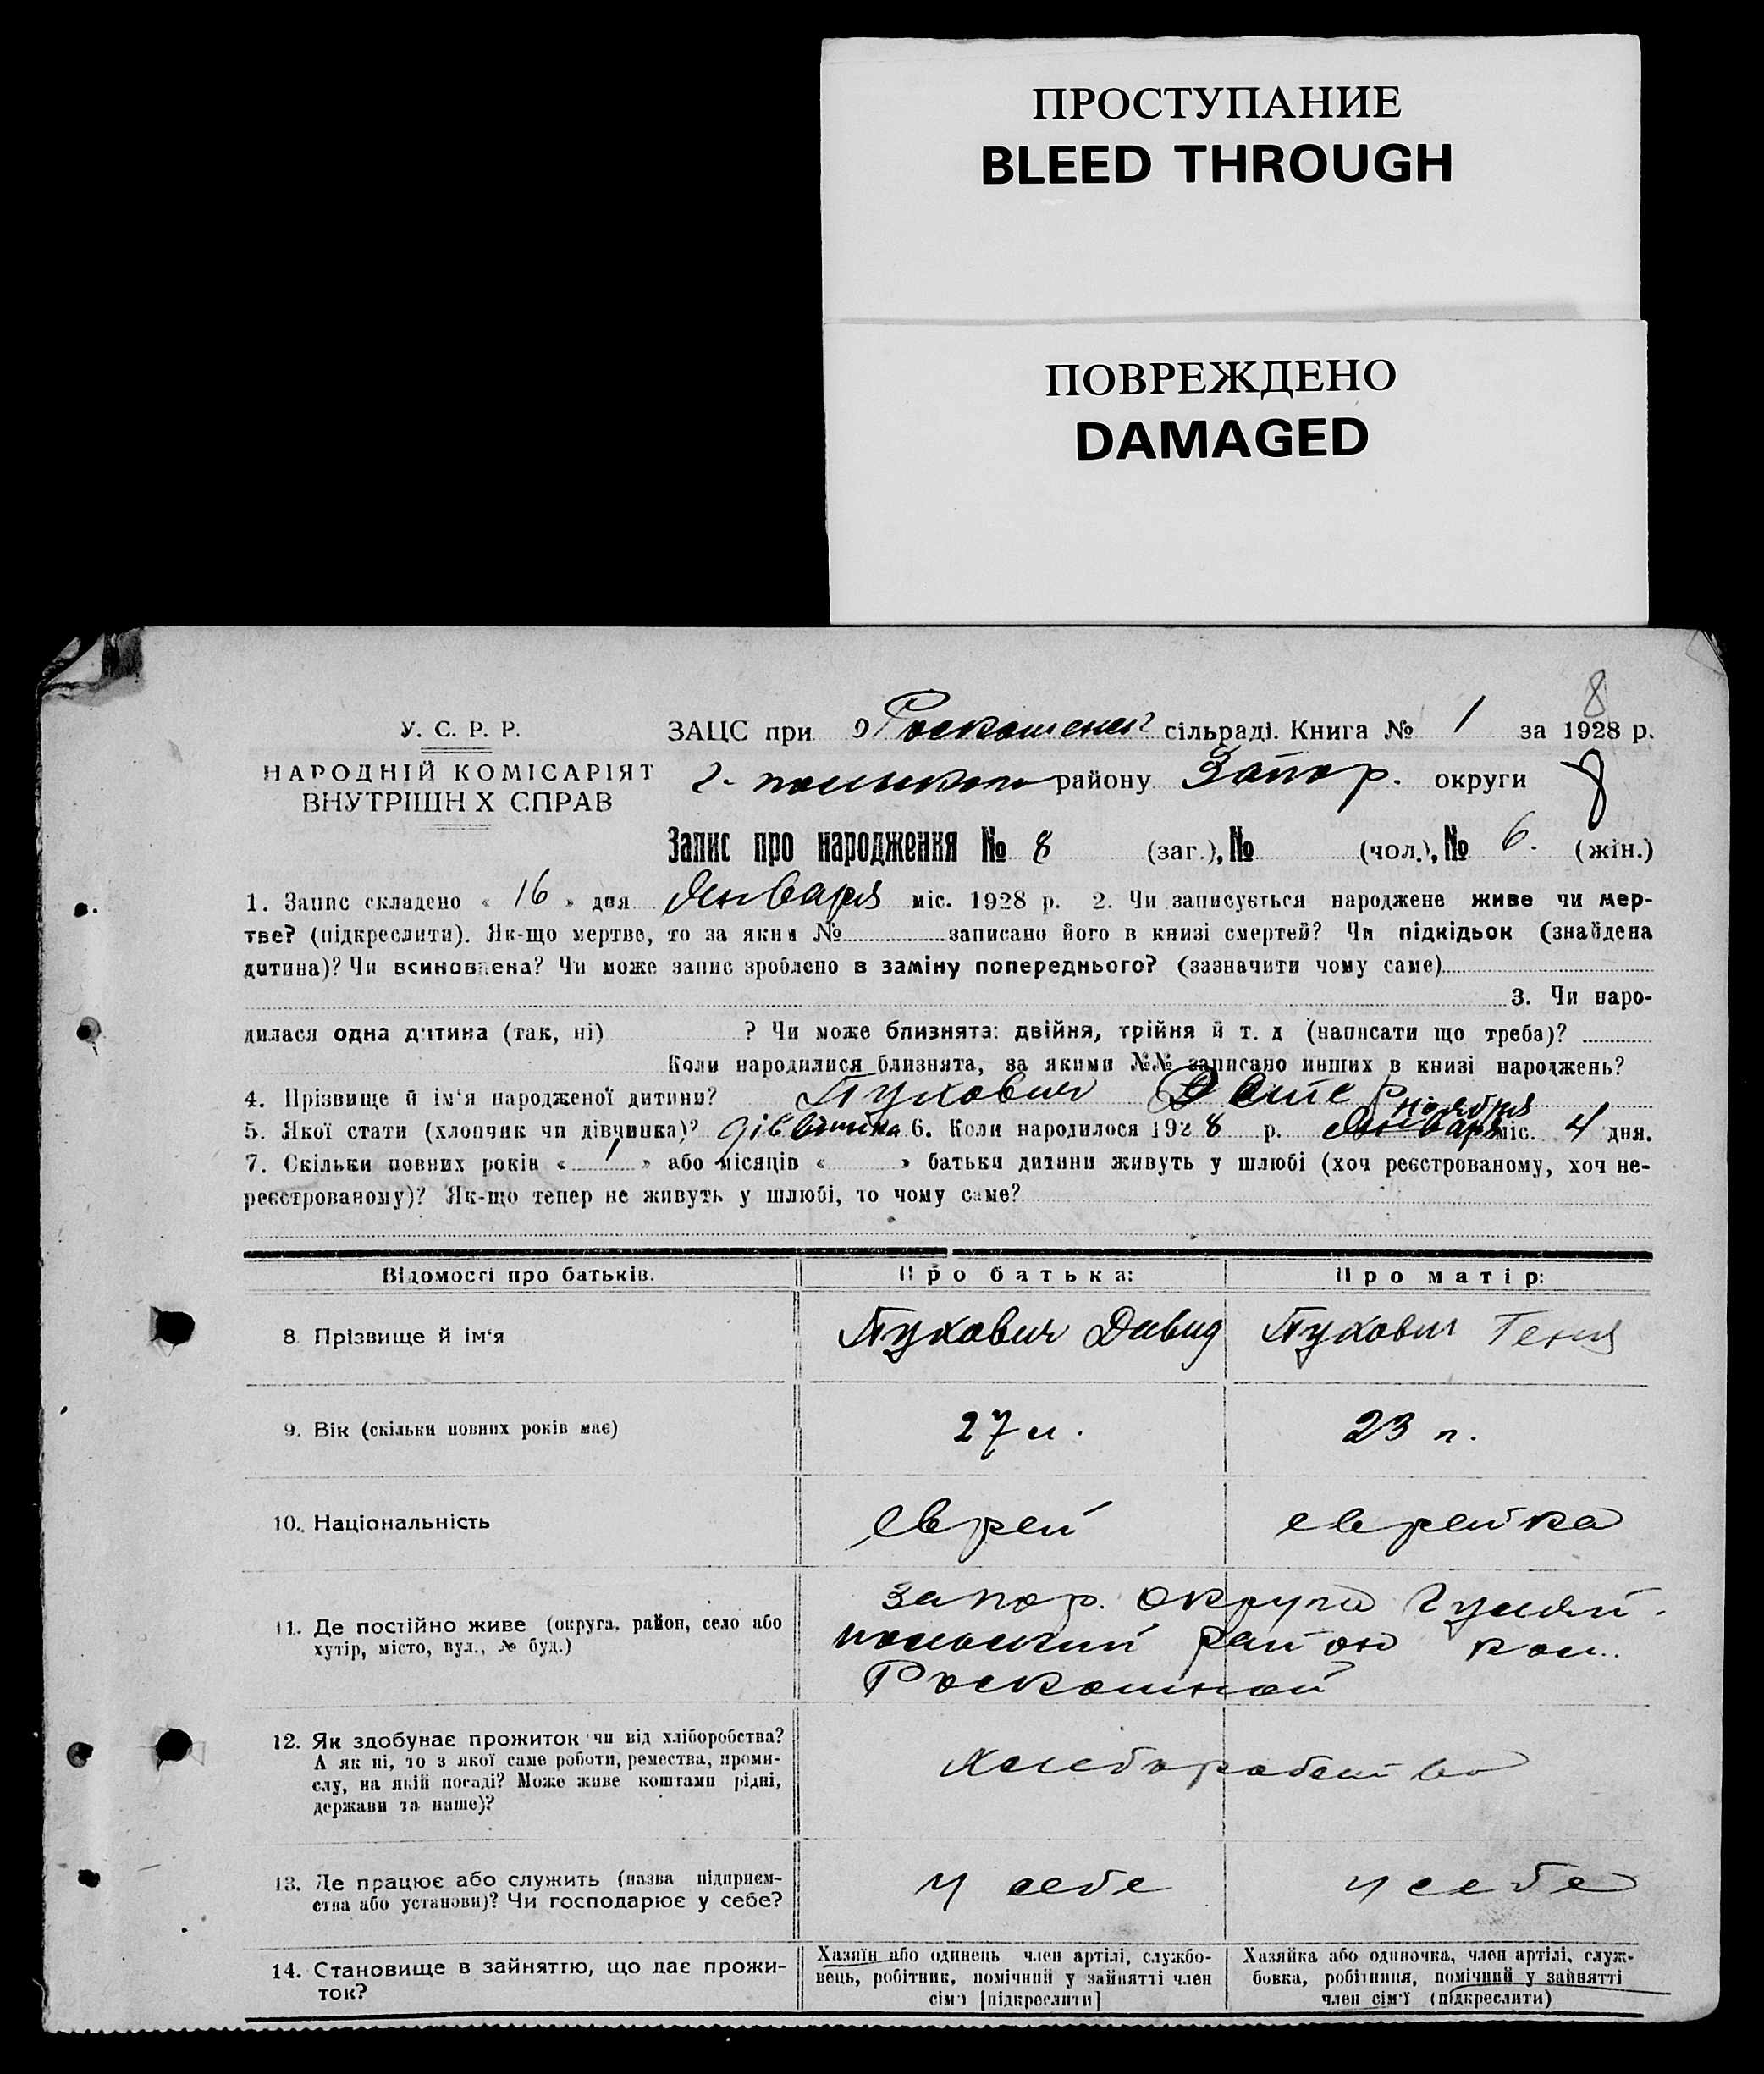 ПРОСТУПАНИЕ
BLEED THROUGH
ПОВРЕЖДЕНО
DAMAGED
8
У. С. Р. Р.
НАРОДНІЙ КОМІСАРІЯТ
ВНУТРІШН Х СПРАВ
ЗАЦС при сільраді. Книга № 1 за 1928 р.
району Запор. округи 8
Запис про народження № 8 (заг.), № (чол.), № 6. (жін.)
1. Запис складено « 16 » дня Января міс. 1928 р. 2. Чи записується народжене живе чи мер-
тве? (підкреслити). Як-що мертве, то за яким № записано його в книзі смертей? Чи підкідьок (знайдена
дитина)? Чи всиновлена? Чи може запис зроблено в заміну попереднього? (зазначити чому саме)
3. Чи наро-
дилася одна дитина (так, ні) ? Чи може близнята: двійня, трійня й т. д (написати що треба)?
Коли народилися близнята, за якими №№ записано инших в книзі народжень?
4. Прізвище й ім'я народженої дитини? Пукович
ноября
5. Якої стати (хлопчик чи дівчинка)? дівчинка 6. Коли народилося 1928 р. Января міс. 4 дня.
7. Скільки повних років « 1 » або місяців « » батьки дитини живуть у шлюбі (хоч реєстрованому, хоч не-
реєстрованому)? Як-що тепер не живуть у шлюбі, то чому саме?
Відомості про батьків. Про батька: Про матір:
8. Прізвище й ім'я Пукович Давид Пукович Геня
9. Вік (скільки повних років має) 27 л. 23 л.
10. Національність еврей еврейка
11. Де постійно живе (округа, район, село або
хутір, місто, вул., № буд.)
запор. округа Гуляй-
польский район кол.
Роскошной
12. Як здобуває прожиток чи від хліборобства?
А як ні, то з якої саме роботи, ремества, проми-
слу, на якій посаді? Може живе коштами рідні,
держави та инше)?
хлеборобство
13. Де працює або служить (назва підприєм-
ства або установи)? Чи господарює у себе?
у себе у себе
14. Становище в зайняттю, що дає прожи-
ток?
Хазяїн або одинець член артілі, службо-
вець, робітник, помічний у зайнятті член
сім'ї [підкреслити]
Хазяйка або одиночка, член артілі, служ-
бовка, робітниця, помічний у зайнятті
член сім'ї (підкреслити)